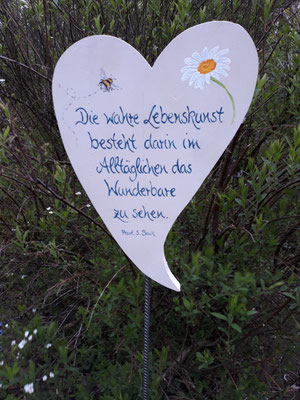 Die wahre Lebenskunst
besteht darin im
Alltäglichen das
Wunderbare
zu sehen.
Pearl S. Buck